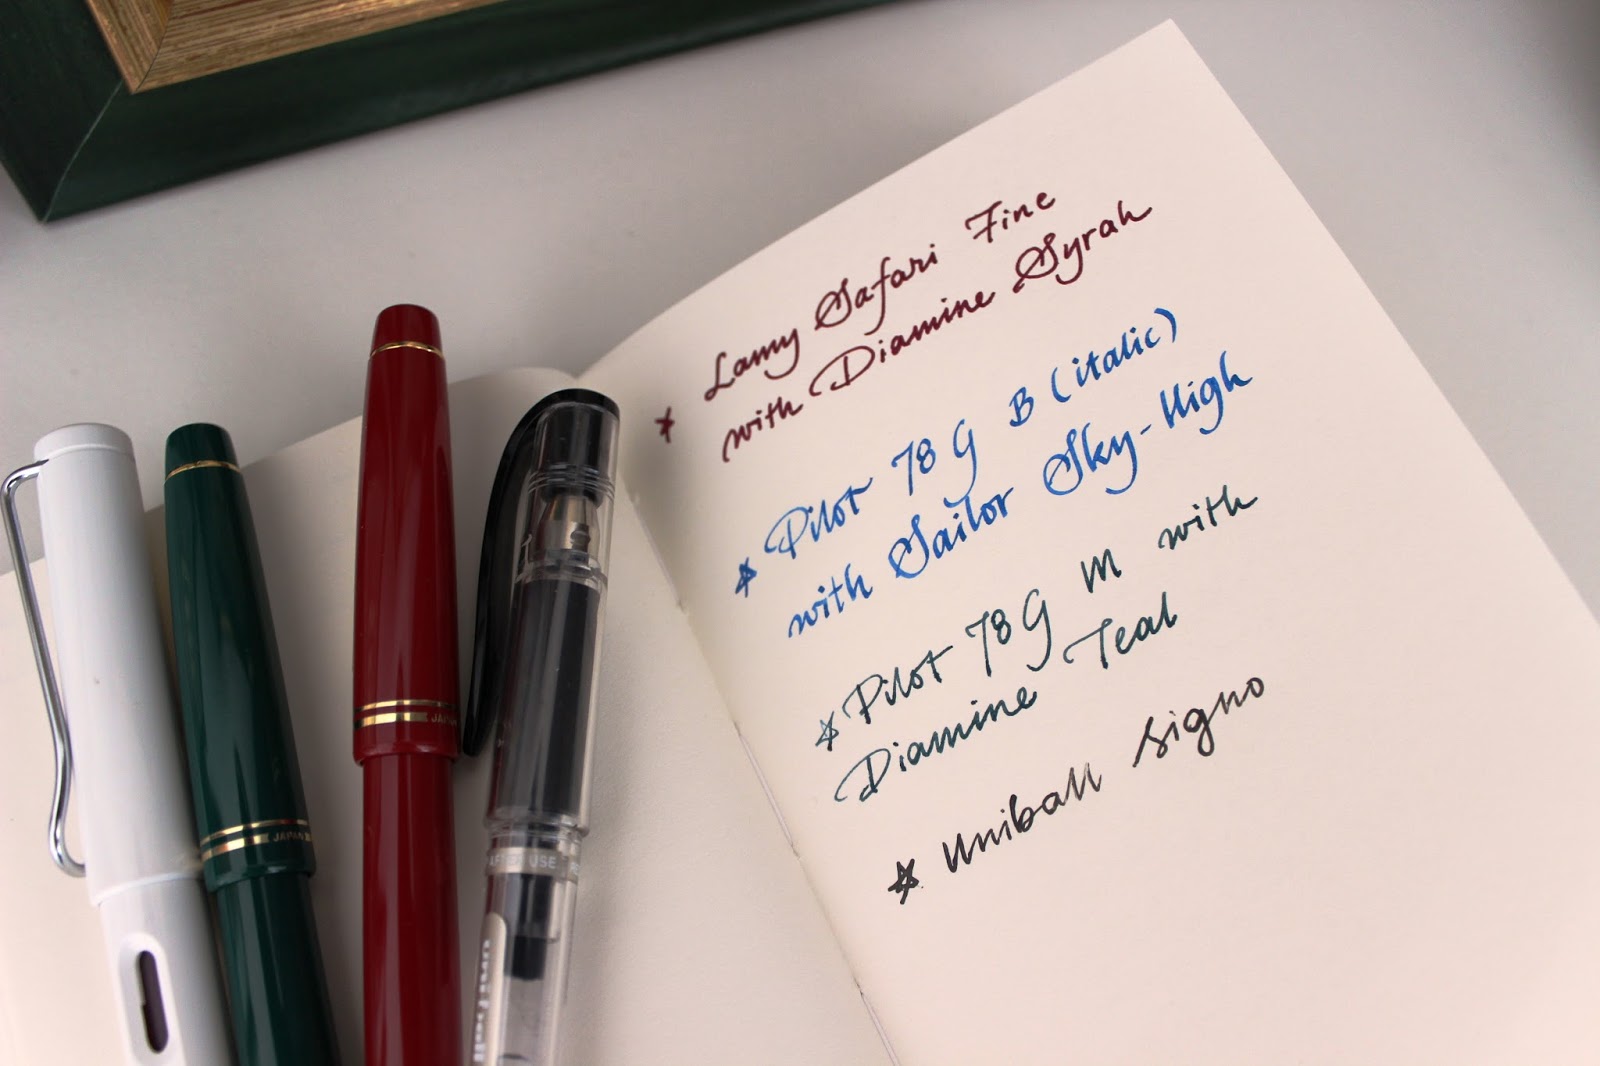 * Lamy Safari Fine
with Diamine Syrah
* Pilot 78 G B (italic)
with Sailor Sky-High
* Pilot 78 G M with
Diamine Teal
* Uniball signo
JAPAN
JAPAN
AFTER USE
uni-ball